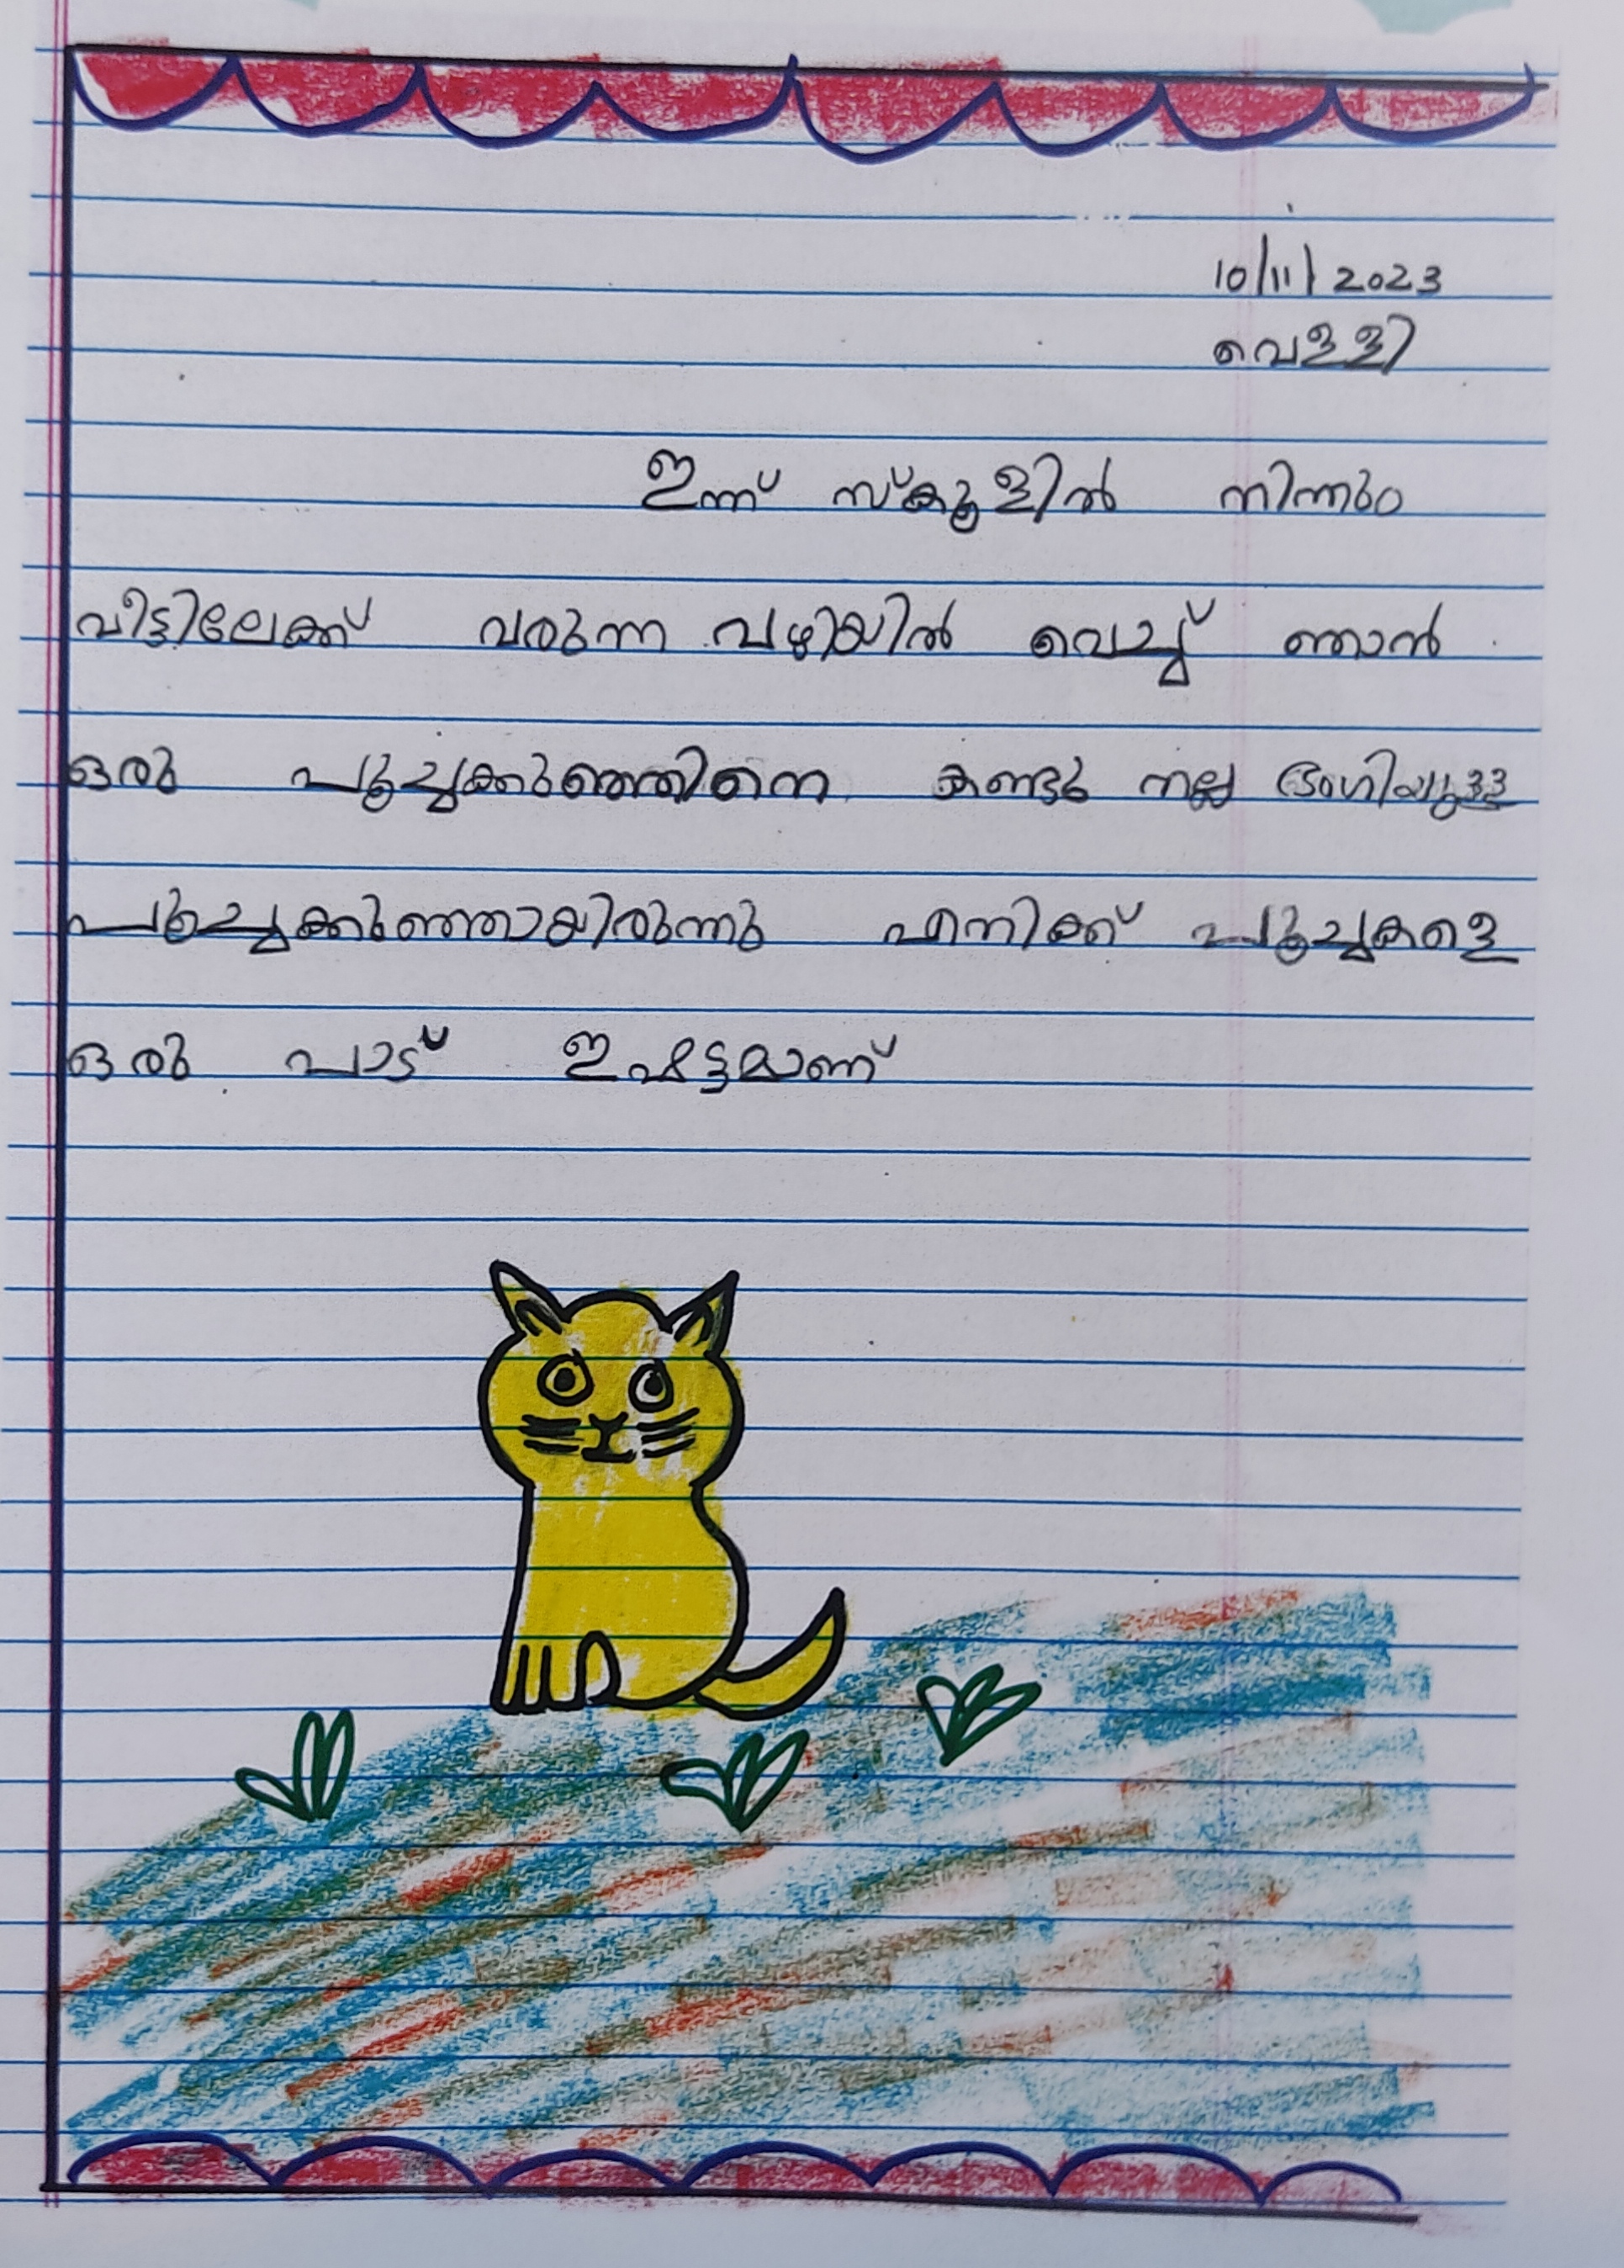 10/11/2023
വെള്ളി
ഇന്ന് സ്കൂളിൽ നിന്നും
വീട്ടിലേക്ക് വരുന്ന വഴിയിൽ വെച്ച് ഞാൻ
ഒരു പൂച്ചക്കുഞ്ഞിനെ കണ്ടു നല്ല ഭംഗിയുള്ള
പൂച്ചക്കുഞ്ഞായിരുന്നു എനിക്ക് പൂച്ചകളെ
ഒരു പാട് ഇഷ്ടമാണ്